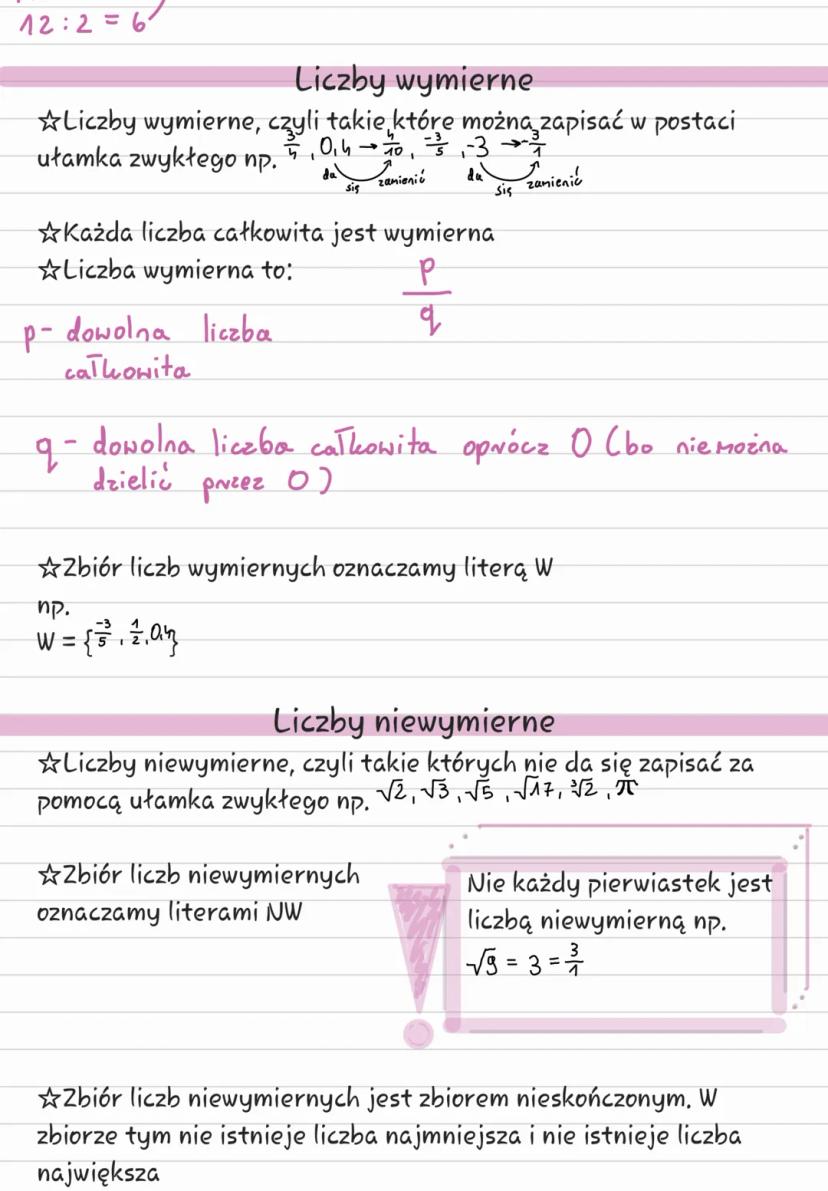 12 : 2 = 6
Liczby wymierne
☆Liczby wymierne, czyli takie które można zapisać w postaci
ułamka zwykłego np. 3/4 , 0,4 → 4/10 , -3/5 , -3 → -3/1
da się zamienić da się zamienić
☆Każda liczba całkowita jest wymierna
☆Liczba wymierna to: p/q
p- dowolna liczba
całkowita
q - dowolna liczba całkowita oprócz 0 (bo nie można
dzielić przez 0)
☆Zbiór liczb wymiernych oznaczamy literą W
np.
W = {-3/5 , 1/2 , 0,4}
Liczby niewymierne
☆Liczby niewymierne, czyli takie których nie da się zapisać za
pomocą ułamka zwykłego np. √2, √3, √5, √17, ∛2, π
☆Zbiór liczb niewymiernych
oznaczamy literami NW
Nie każdy pierwiastek jest
liczbą niewymierną np.
√9 = 3 = 3/1
☆Zbiór liczb niewymiernych jest zbiorem nieskończonym. W
zbiorze tym nie istnieje liczba najmniejsza i nie istnieje liczba
największa